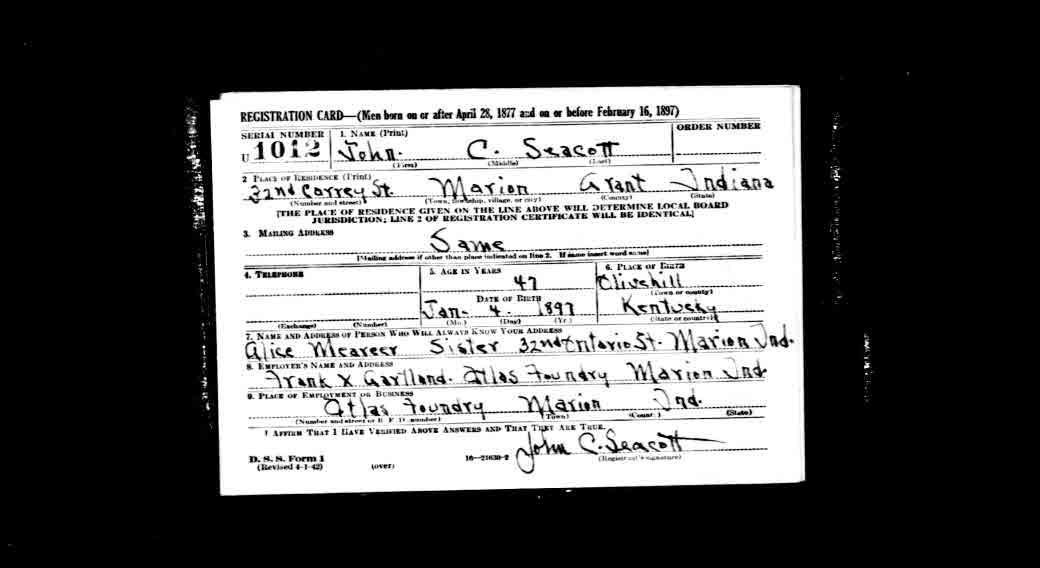 REGISTRATION CARD—(Men born on or after April 28, 1877 and on or before February 16, 1897)
SERIAL NUMBER 1. NAME (Print) ORDER NUMBER
U 1012 John. C. Seacott
(First) (Middle) (Last)
2 PLACE OF RESIDENCE (Print)
32nd Correy St. Marion Grant Indiana
(Number and street) (Town, township, village, or city) (County) (State)
[THE PLACE OF RESIDENCE GIVEN ON THE LINE ABOVE WILL DETERMINE LOCAL BOARD
JURISDICTION; LINE 2 OF REGISTRATION CERTIFICATE WILL BE IDENTICAL]
3. MAILING ADDRESS
Same
[Mailing address if other than place indicated on line 2. If same insert word same]
4. TELEPHONE 5. AGE IN YEARS 6. PLACE OF BIRTH
47 Olivehill
(Town or county)
DATE OF BIRTH
Jan. 4. 1897 Kentucky
(Exchange) (Number) (Mo.) (Day) (Yr.) (State or country)
7. NAME AND ADDRESS OF PERSON WHO WILL ALWAYS KNOW YOUR ADDRESS
Alice Mcareer Sister 32nd Ontario St. Marion Ind.
8. EMPLOYER'S NAME AND ADDRESS
Frank X Gartland. Atlas Foundry Marion Ind.
9. PLACE OF EMPLOYMENT OR BUSINESS
Atlas Foundry Marion Ind.
(Number and street or R. F. D. number) (Town) (County) (State)
I AFFIRM THAT I HAVE VERIFIED ABOVE ANSWERS AND THAT THEY ARE TRUE.
John C. Seacott
D. S. S. Form 1 16—21630-2 (Registrant's signature)
(Revised 4-1-42) (over)